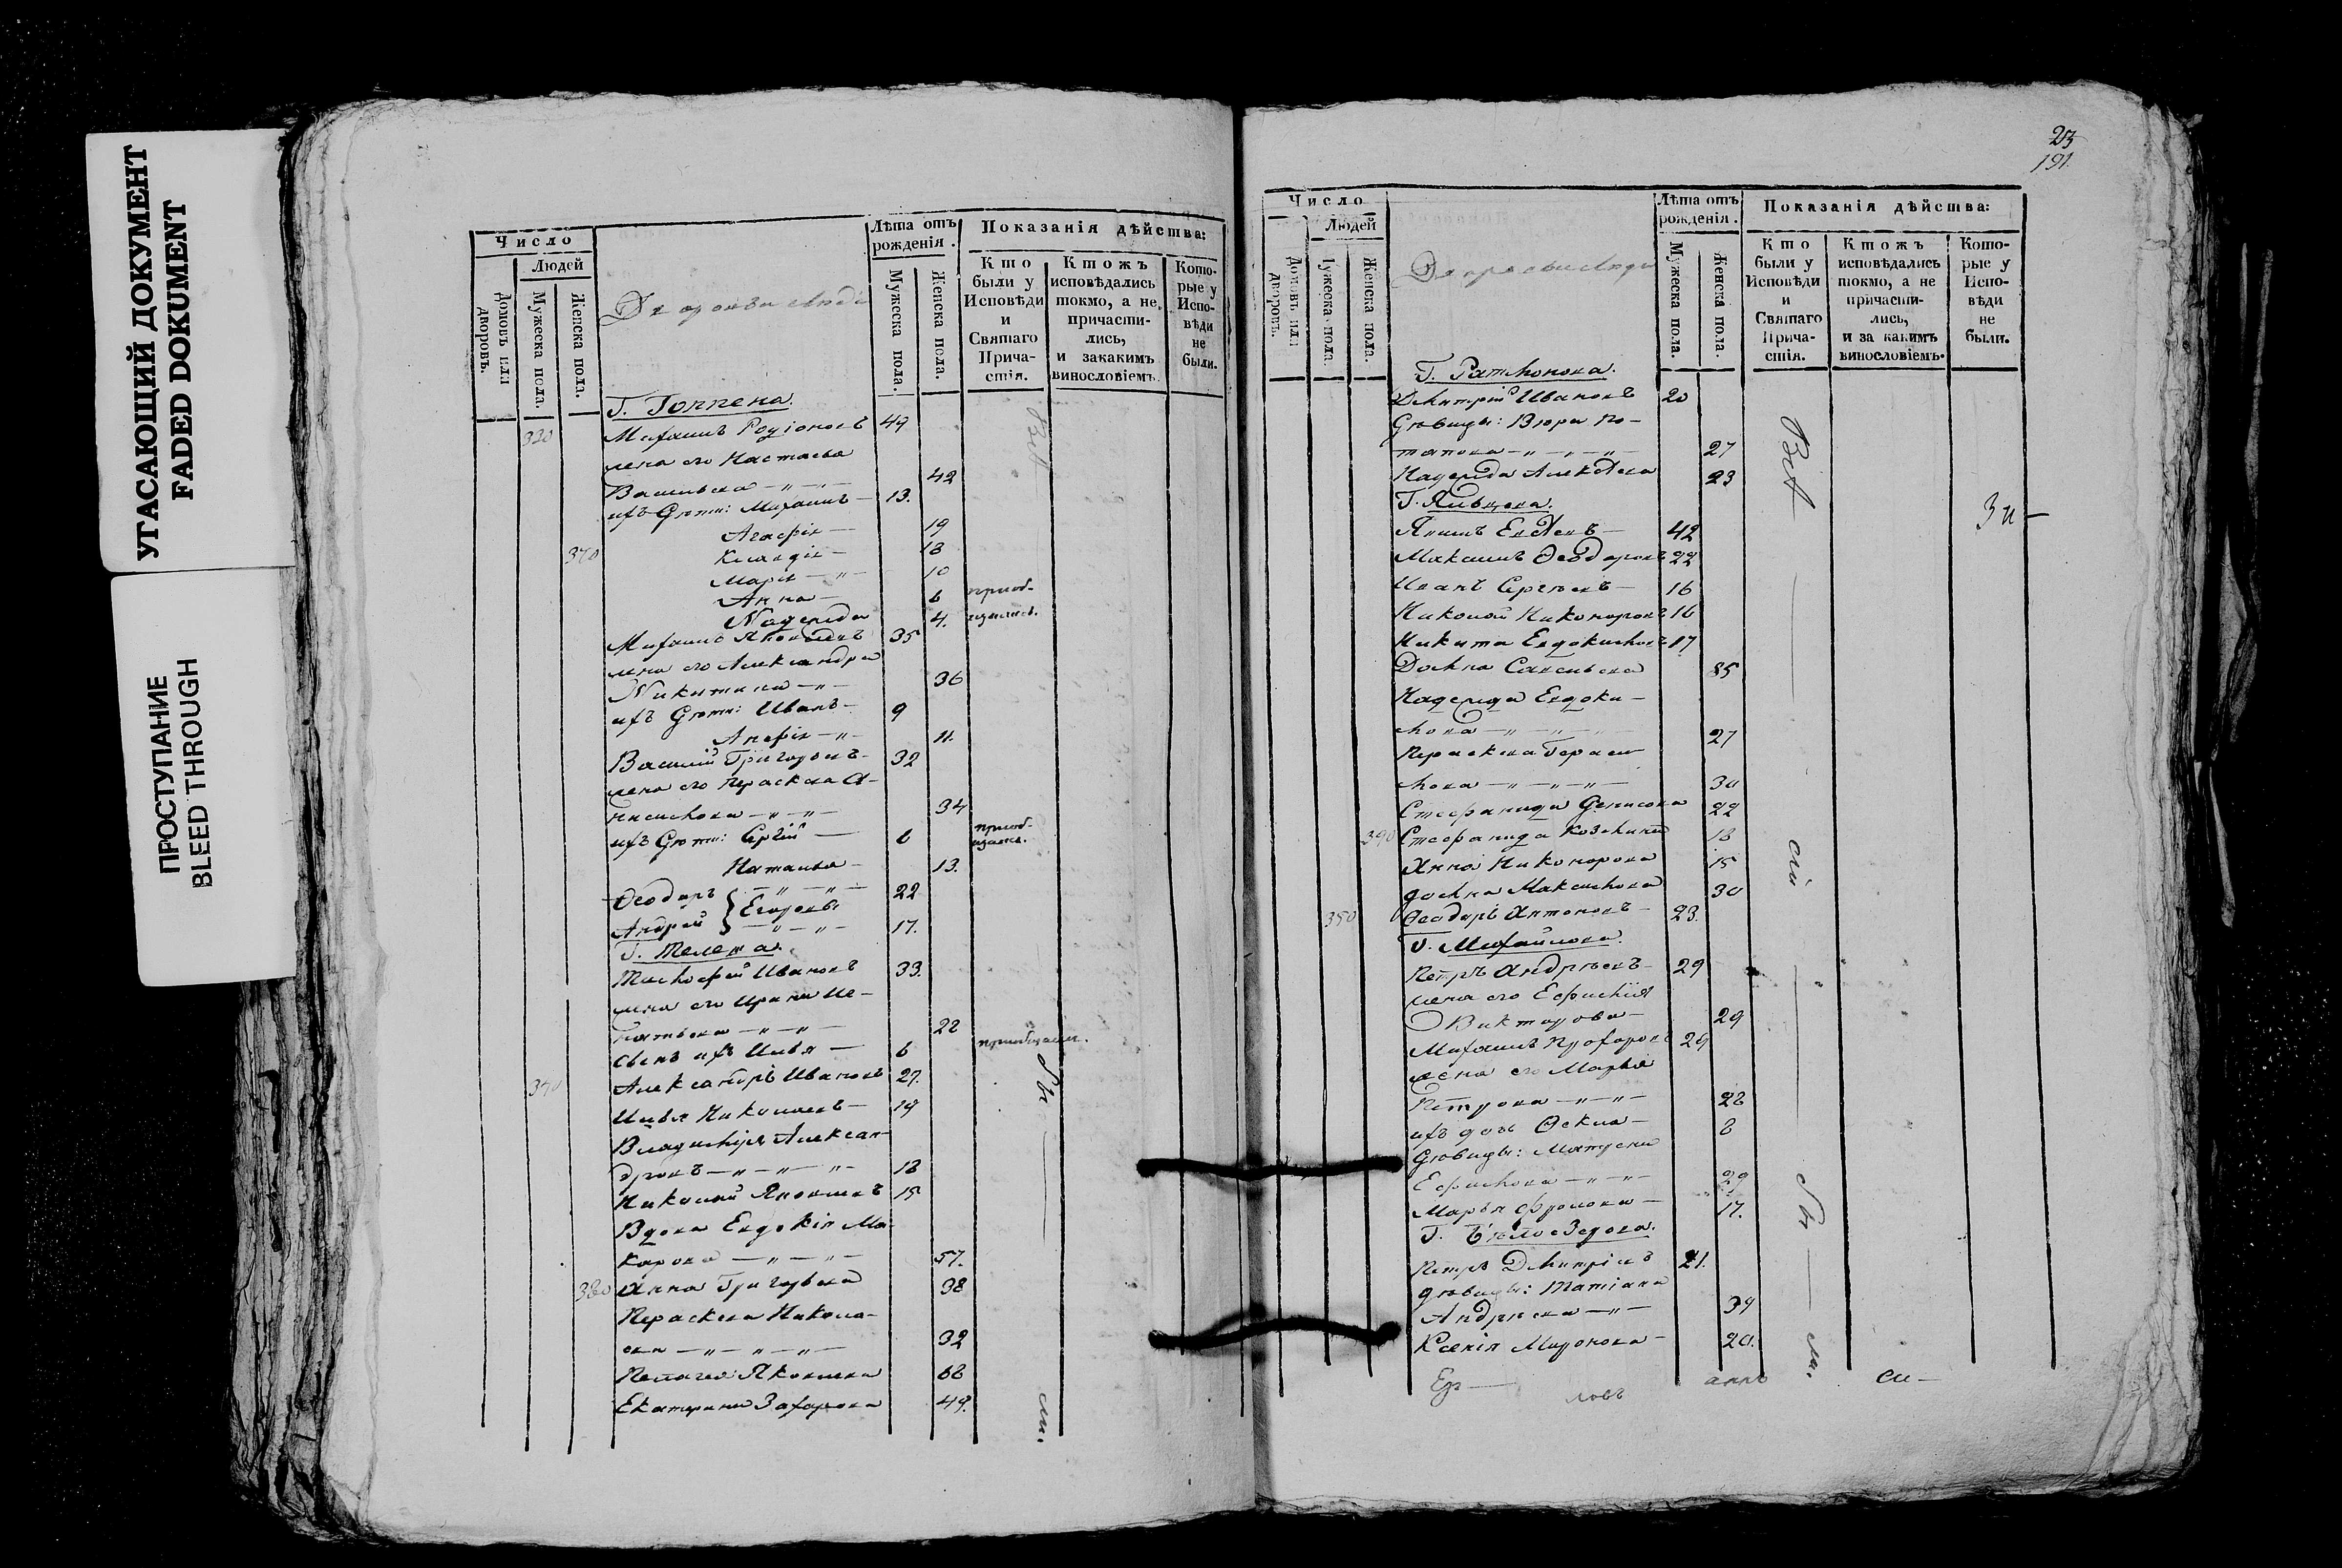 УГАСАЮЩИЙ ДОКУМЕНТ
FADED DOKUMENT
ПРОСТУПАНИЕ
BLEED THROUGH
Число
Людей
Домовъ или дворовъ.
Мужеска пола.
Женска пола.
Лѣта отъ рожденія.
Мужеска пола.
Женска пола.
Показанія дѣйства:
Кто были у Исповѣди и Святаго Причастія.
Ктожъ исповѣдались токмо, а не причастились, и закакимъ винословіемъ.
Которые у Исповѣди не были.
Михаилъ Родіоновъ 49
жена его Настасья
Васильева 42
ихъ дѣти: Михаилъ 13.
Агафія 19
370 Клавдія 18
Марія 10
Анна 6 приоб-
Надежда 4. щались.
Михаилъ Яковлевъ 35
жена его Александра
Никитина 36
ихъ дѣти: Иванъ 9
11.
Василій Григорьевъ 32
жена его Параскева О-
нисимова 34
ихъ дѣти: Сергій 6 приоб-
щался.
Наталья 13.
Ѳеодоръ 22
Егоровы
Андрей 17.
Тимофей Ивановъ 33.
жена его Ирина Иг-
натьева 22
сынъ ихъ Илья 6 приобщался.
340 Александръ Ивановъ 27.
Илья Николаевъ 19
Владиміръ Алексан-
дровъ 18
Николай Яковлевъ 15
Вдова Евдокія Ма-
карова 57.
380 Анна Григорьева 38
Параскева Никола-
ева 32
Пелагея Яковлева 68
Екатерина Захарова 49.
191.
Число
Людей
Домовъ или дворовъ.
Мужеска пола.
Женска пола.
Дворовыи люди
Лѣта отъ рожденія.
Мужеска пола.
Женска пола.
Показанія дѣйства:
Кто были у Исповѣди и Святаго Причастія.
Ктожъ исповѣдались токмо, а не причастились, и за какимъ винословіемъ.
Которые у Исповѣди не были.
Г. Ратмонова.
Дмитрій Ивановъ 20
27
Надежда Алексѣева 23
42
Максимъ Ѳеодоровъ 22
Иванъ Сергѣевъ 16
Николай Никоноровъ 16
Никита Евдокимовъ 17
Домна Савельева 85
Надежда Евдоки-
мова 27
Параскева Гераси-
мова 30
Стефанида Денисова 22
390 Стефанида Козмина 18
Анна Никонорова 15
Домна Максимова 30
350 Ѳеодоръ Антоновъ 23.
Г. Михайлова.
Петръ Андрѣевъ 29
жена его Ефимія
Викторова 29
Михаилъ Прохоровъ 29
жена его Марья
Петрова 28
ихъ дочь Ѳекла 8
дѣвицы: Матрена
Ефимова 29
Марья Фролова 17.
Г. Бѣлозедова.
Петръ Дмитріевъ 21.
дѣвицы: Татіана
Андрѣева 34
Ксенія Миронова 20.